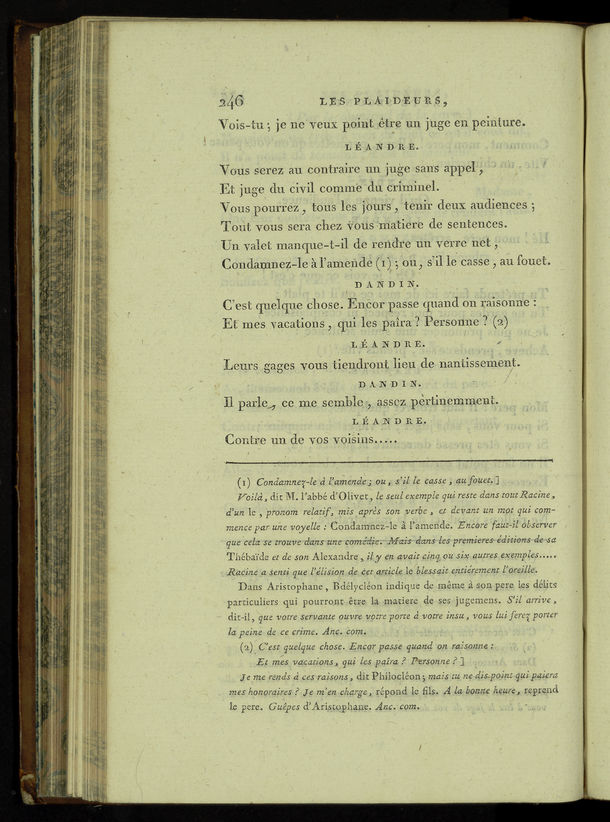 246 LES PLAIDEURS,
Vois-tu ; je ne veux point être un juge en peinture.
LÉANDRE.
Vous serez au contraire un juge sans appel,
Et juge du civil comme du criminel.
Vous pourrez, tous les jours, tenir deux audiences ;
Tout vous sera chez vous matiere de sentences.
Un valet manque-t-il de rendre un verre net,
Condamnez-le à l'amende (1) ; ou, s'il le casse, au fouet.
DANDIN.
C'est quelque chose. Encor passe quand on raisonne :
Et mes vacations, qui les païra ? Personne ? (2)
LÉANDRE.
Leurs gages vous tiendront lieu de nantissement.
DANDIN.
Il parle, ce me semble, assez pertinemment.
LÉANDRE.
Contre un de vos voisins.....
(1) Condamnez-le à l'amende ; ou, s'il le casse, au fouet.]
Voilà, dit M. l'abbé d'Olivet, le seul exemple qui reste dans tout Racine,
d'un le, pronom relatif, mis après son verbe, et devant un mot qui com-
mence par une voyelle : Condamnez-le à l'amende. Encore faut-il observer
que cela se trouve dans une comédie. Mais dans les premieres éditions de sa
Thébaïde et de son Alexandre, il y en avait cinq ou six autres exemples.....
Racine a senti que l'élision de cet article le blessait entiérement l'oreille.
Dans Aristophane, Bdélycléon indique de même à son pere les délits
particuliers qui pourront être la matiere de ses jugemens. S'il arrive,
dit-il, que votre servante ouvre votre porte à votre insu, vous lui ferez porter
la peine de ce crime. Anc. com.
(2) C'est quelque chose. Encor passe quand on raisonne :
Et mes vacations, qui les païra ? Personne ?]
Je me rends à ces raisons, dit Philocléon ; mais tu ne dis point qui paiera
mes honoraires ? Je m'en charge, répond le fils. A la bonne heure, reprend
le pere. Guêpes d'Aristophane. Anc. com.